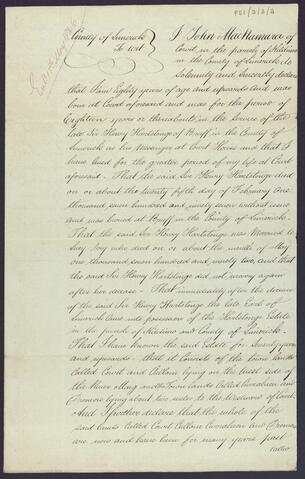 P51/3/3/3
County of Limerick
To wit
I John MacNamara of
Court, in the parish of Kildimo
in the County of Limerick do
Solemnly and Sincerely declare
that I am Eighty years of age and upwards and was
born at Court aforesaid and was for the period of
Eighteen years or thereabouts in the service of the
late Sir Henry Hartstonge of Bruff in the County of
Limerick as his messenger at Court House and that I
have lived for the greater period of my life at Court
aforesaid - That the said Sir Henry Hartstonge died
on or about the twenty fifth day of February One
thousand seven hundred and ninety seven without issue
and was buried at Bruff in the County of Limerick
That the said Sir Henry Hartstonge was Married to
Lucy who died on or about the month of May
one thousand seven hundred and ninety two, and that
the said Sir Henry Hartstonge did not marry again
after her decease - That immediately after the decease
of the said Sir Henry Hartstonge the late Earl of
Limerick came into possession of the Hartstonge Estate
in the parish of Kildimo and County of Limerick
That I have known the said Estate for Seventy years
and upwards - that it consists of the town lands
Called Court and Cullane lying on the West side of
the River Maig and the Town Lands Called
lying about two miles to the Westward of Court
And I further declare that the whole of the
said lands Called Court Cullane and
are now and have been for many years past